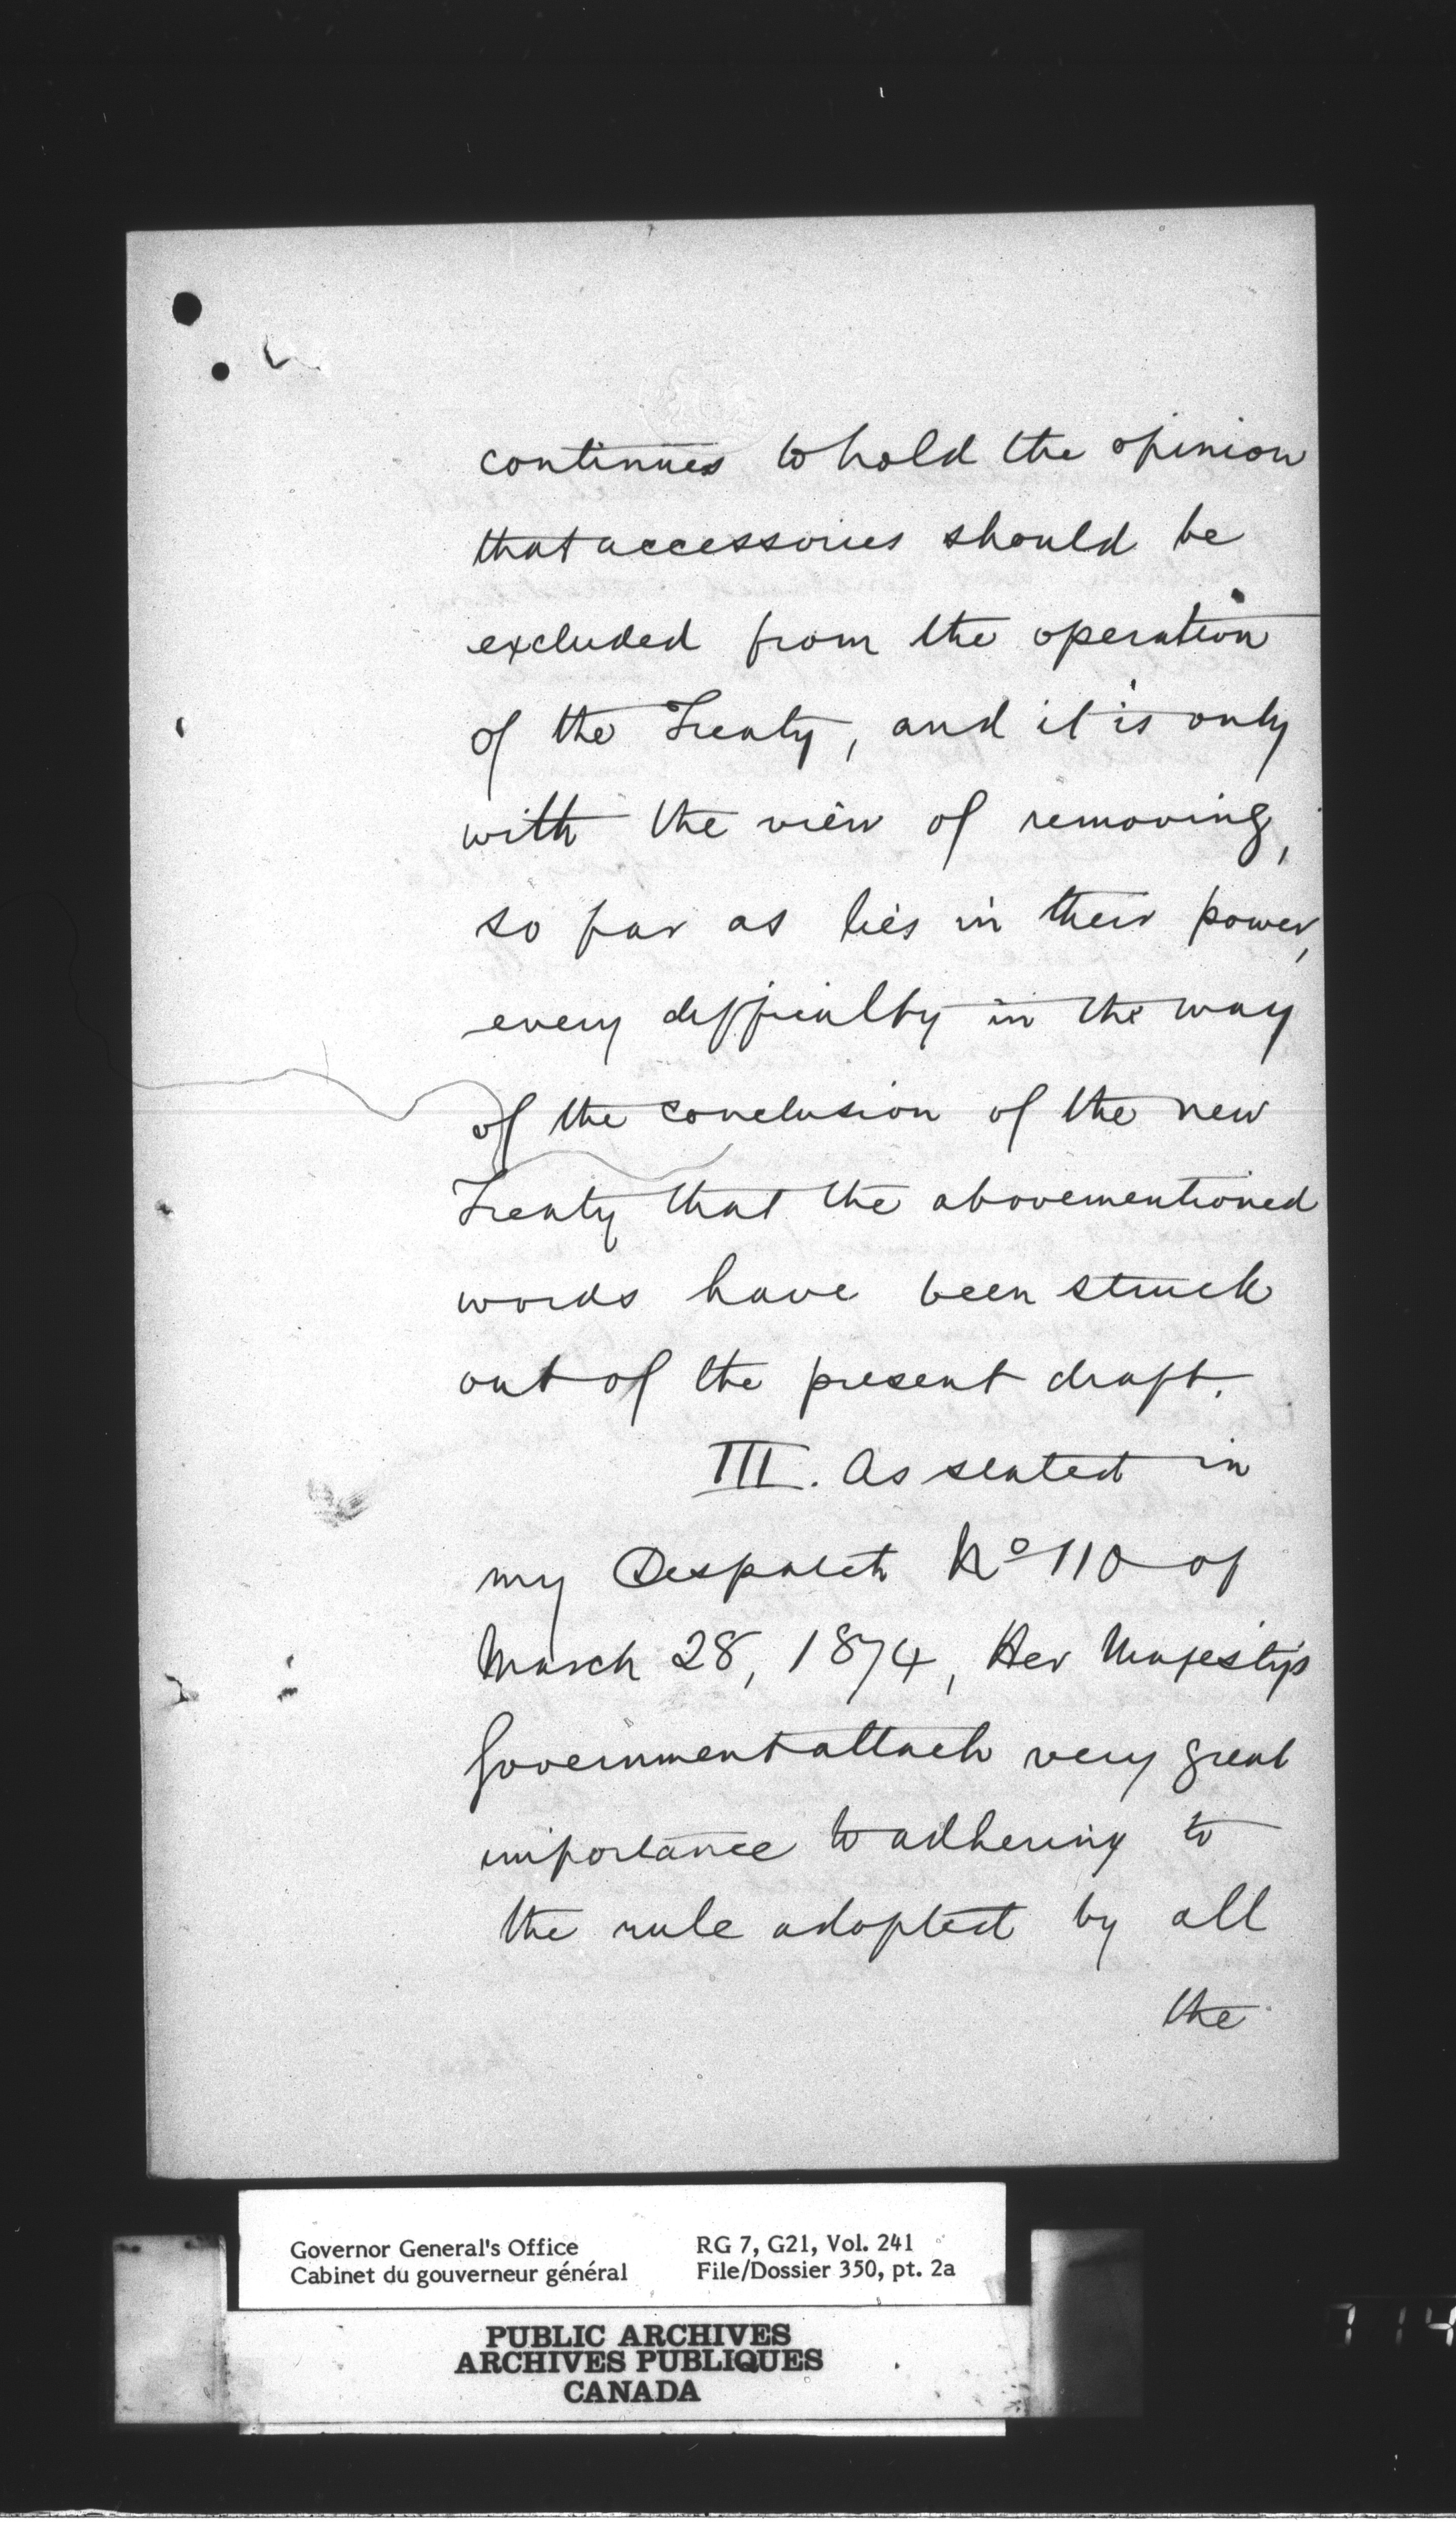 continues to hold the opinion
that accessories should be
excluded from the operation
of the Treaty, and it is only
with the view of removing,
so far as lies in their power,
every difficulty in the way
of the conclusion of the new
Treaty that the abovementioned
words have been struck
out of the present draft.
III. As stated in
my Despatch No 110 of
March 28, 1874, Her Majesty's
Government attach very great
importance to adhering to
the rule adopted by all
the
Governor General's Office
Cabinet du gouverneur général
RG 7, G21, Vol. 241
File/Dossier 350, pt. 2a
PUBLIC ARCHIVES
ARCHIVES PUBLIQUES
CANADA